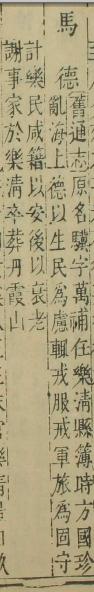 馬德
舊通志原名驥字萬補任樂清縣簿時方國珍
亂海上德以生民為慮輒戎服戒軍旅為固守
計樂民咸籍以安後以衰老
謝事家於樂清卒葬丹霞山